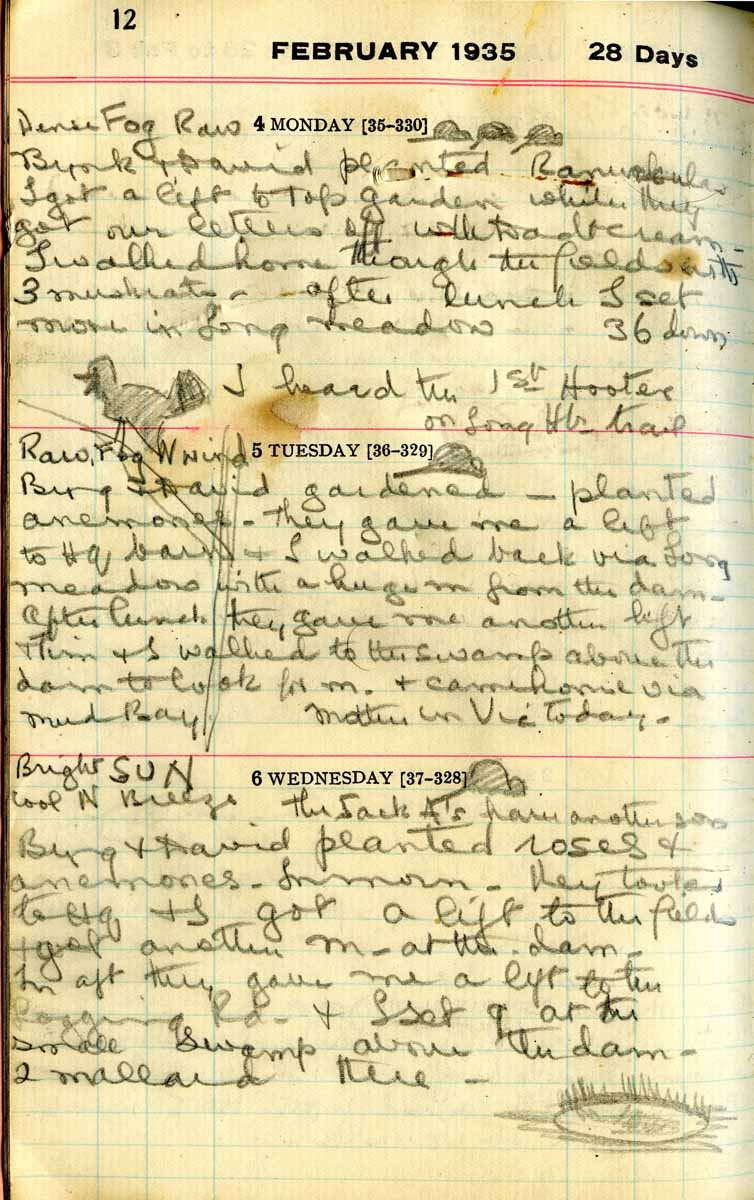 12
FEBRUARY 1935 28 Days
Dense Fog Raw 4 MONDAY [35-330]
& David planted
I got a lift to Top garden while they
got our letters off with road & cream -
I walked home through the fields with
3 muskrats - after lunch I set
more in Long meadow 36 down
I heard the 1st Hooter
on Long Hbr trail
Raw, Fog W wind 5 TUESDAY [36-329]
Byng & David gardened - planted
anemones - They gave me a lift
to Hq barn & I walked back via Long
meadow with a huge m from the dam -
After lunch they gave me another lift
& I walked to the swamp above the
dam to look for m. & came home via
mud Bay. Mother in Vic today -
Bright SUN 6 WEDNESDAY [37-328]
Cool N Breeze The Jack have another son
Byng & David planted roses &
anemones - In morn - they
to Hq & I got a lift to the fields
& got another m - at the dam -
In aft they gave me a lift to the
Logging Rd - & I set 9 at the
small swamp above the dam -
2 mallard there -